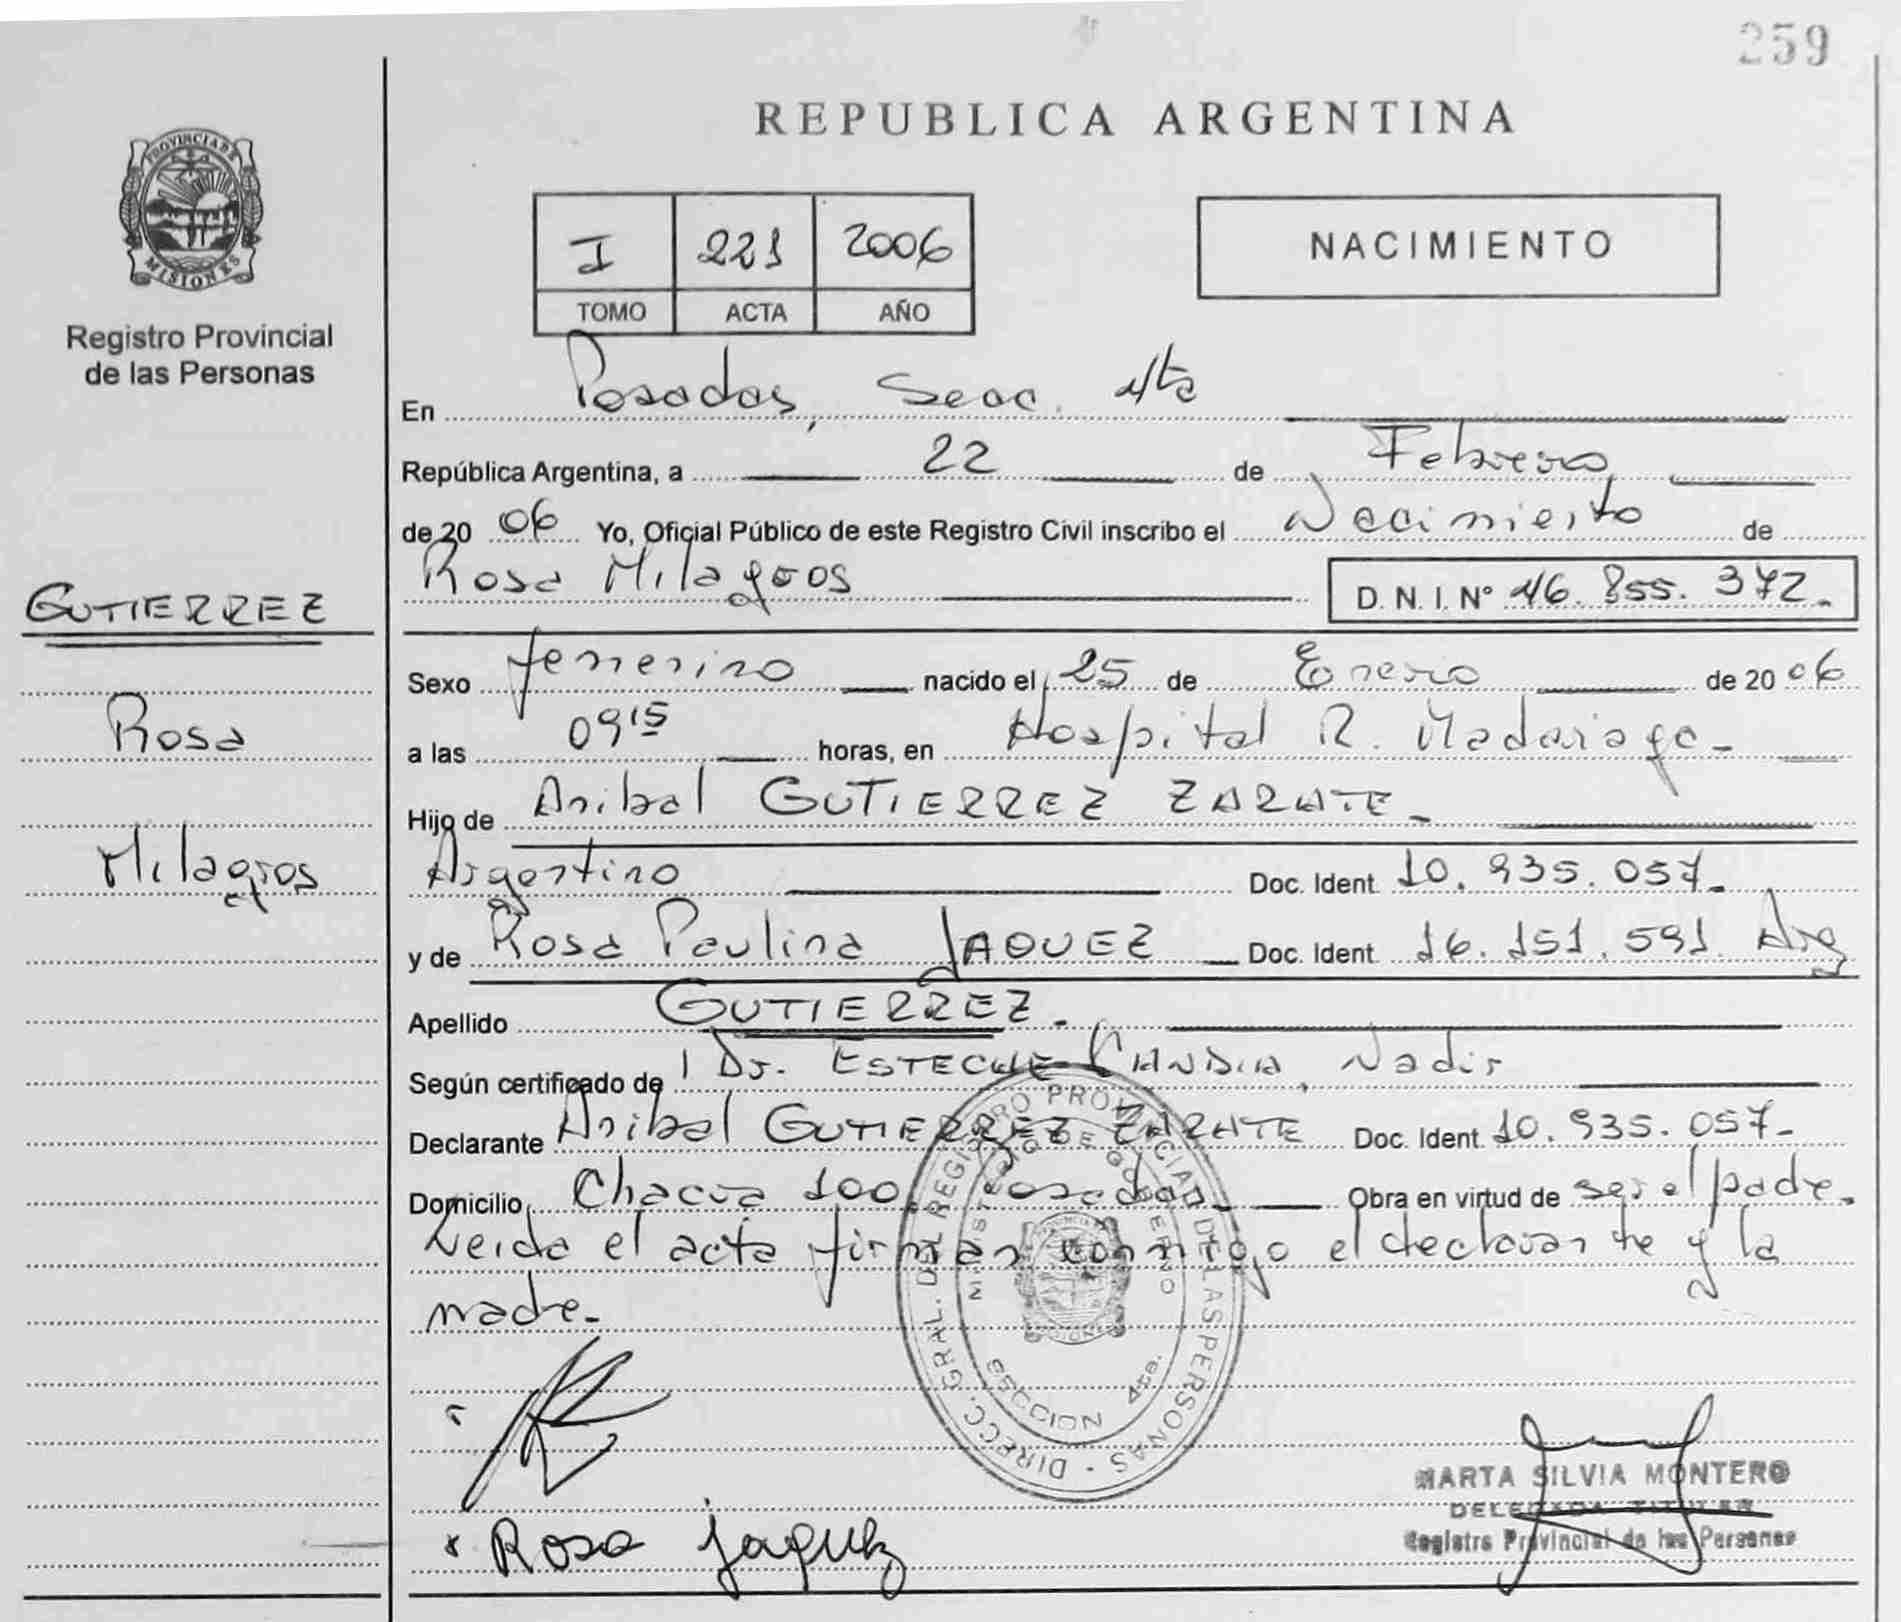 259
REPUBLICA ARGENTINA
PROVINCIA DE
MISIONES
Registro Provincial
de las Personas
I 221 2006
TOMO ACTA AÑO
NACIMIENTO
En Posadas, Secc. 4ta
República Argentina, a 22 de Febrero
de 20 06 Yo, Oficial Público de este Registro Civil inscribo el Nacimiento de
Rosa Milagros
D. N. I. Nº 46.855.372.-
GUTIERREZ
Rosa
Milagros
Sexo femenino nacido el 25 de Enero de 20 06
a las 09 15 horas, en Hospital R. Madariaga-
Hijo de Anibal GUTIERREZ ZARATE-
Argentino Doc. Ident. 10.935.057.-
y de Rosa Paulina JAQUEZ Doc. Ident. 16.151.591. Arg
Apellido GUTIERREZ.-
Según certificado de Dr. ESTECHE Nadir
Declarante Anibal GUTIERREZ ZARATE Doc. Ident. 10.935.057.-
Domicilio Chacra 100, Posadas Obra en virtud de ser el padre.
Leida el acta firman conmigo el declarante y la
madre.-
DIRECC. GRAL. DEL REGISTRO PROVINCIAL DE LAS PERSONAS
MINISTERIO DE GOBIERNO
SECCION 4ta.
Rosa Jaquez
MARTA SILVIA MONTERO
DELEGADA TITULAR
Registro Provincial de las Personas